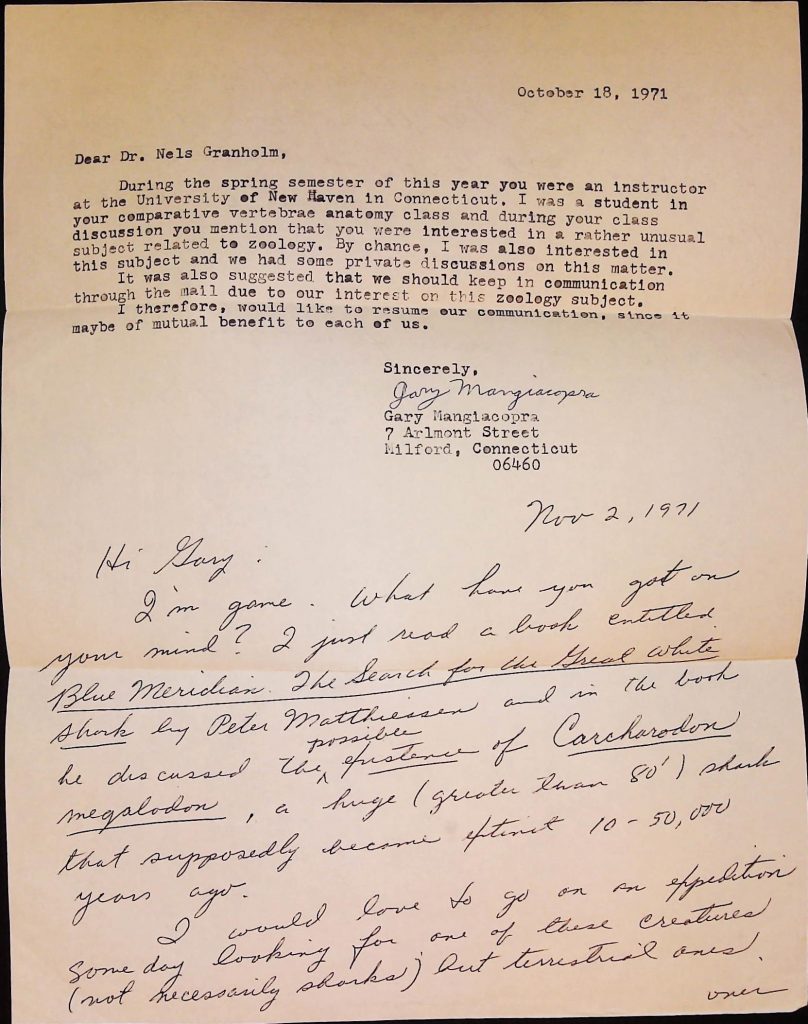 October 18, 1971
Dear Dr. Nels Granholm,
During the spring semester of this year you were an instructor
at the University of New Haven in Connecticut. I was a student in
your comparative vertebrae anatomy class and during your class
discussion you mention that you were interested in a rather unusual
subject related to zoology. By chance, I was also interested in
this subject and we had some private discussions on this matter.
It was also suggested that we should keep in communication
through the mail due to our interest on this zoology subject.
I therefore, would like to resume our communication, since it
maybe of mutual benefit to each of us.
Sincerely,
Gary Mangiacopra
Gary Mangiacopra
7 Arlmont Street
Milford, Connecticut
06460
Nov 2, 1971
Hi Gary:
I'm game. What have you got on
your mind? I just read a book entitled
Blue Meridian. The Search for the Great White
Shark by Peter Matthiessen and in the book
he discussed the ^ possible existence of Carcharodon
megalodon, a huge (greater than 80') shark
that supposedly became extinct 10-50,000
years ago.
I would love to go on an expedition
some day looking for one of these creatures
(not necessarily sharks) but terrestrial ones.
over